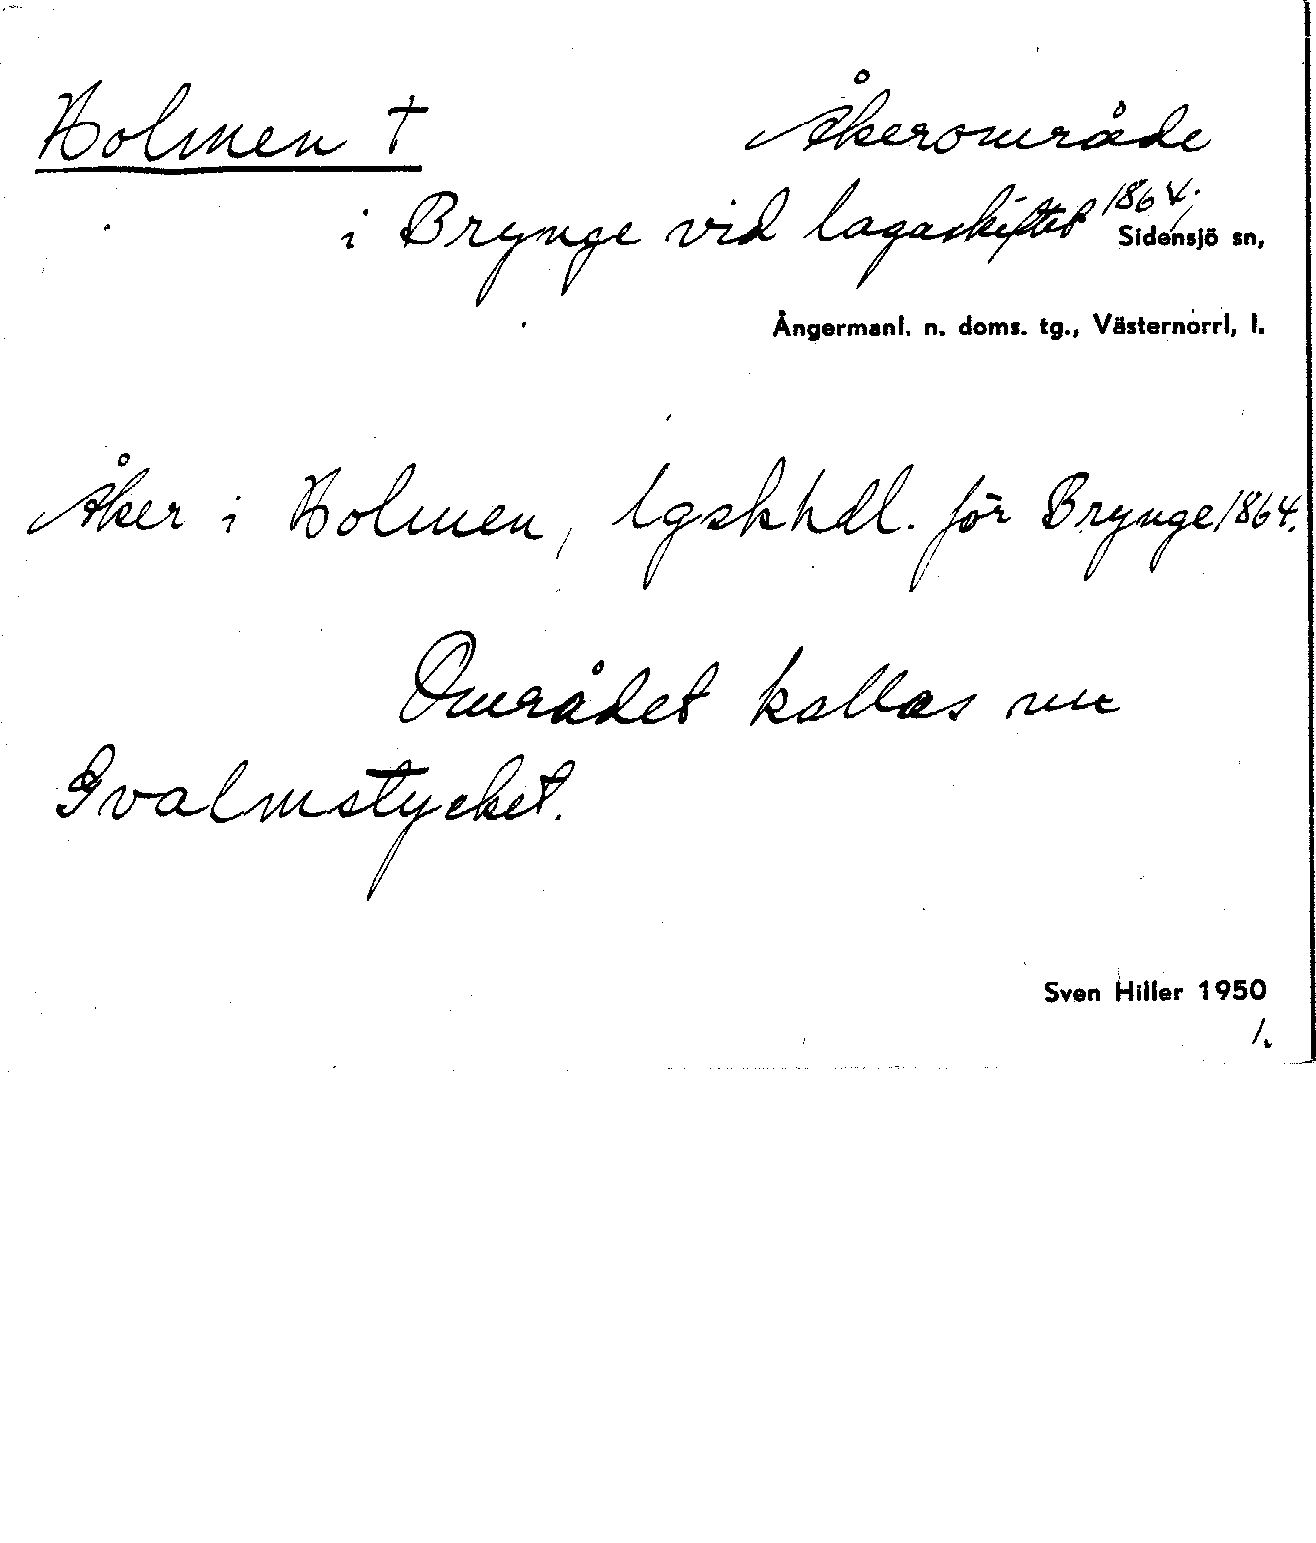 Holmen † Åkerområde
i Brynge vid lagaskiftet 1864,
Sidensjö sn,
Ångermanl. n. doms. tg., Västernorrl, l.
Åker i Holmen, lgskhdl. för Brynge 1864.
Området kallas nu
Gvalmstycket.
Sven Hiller 1950
1.